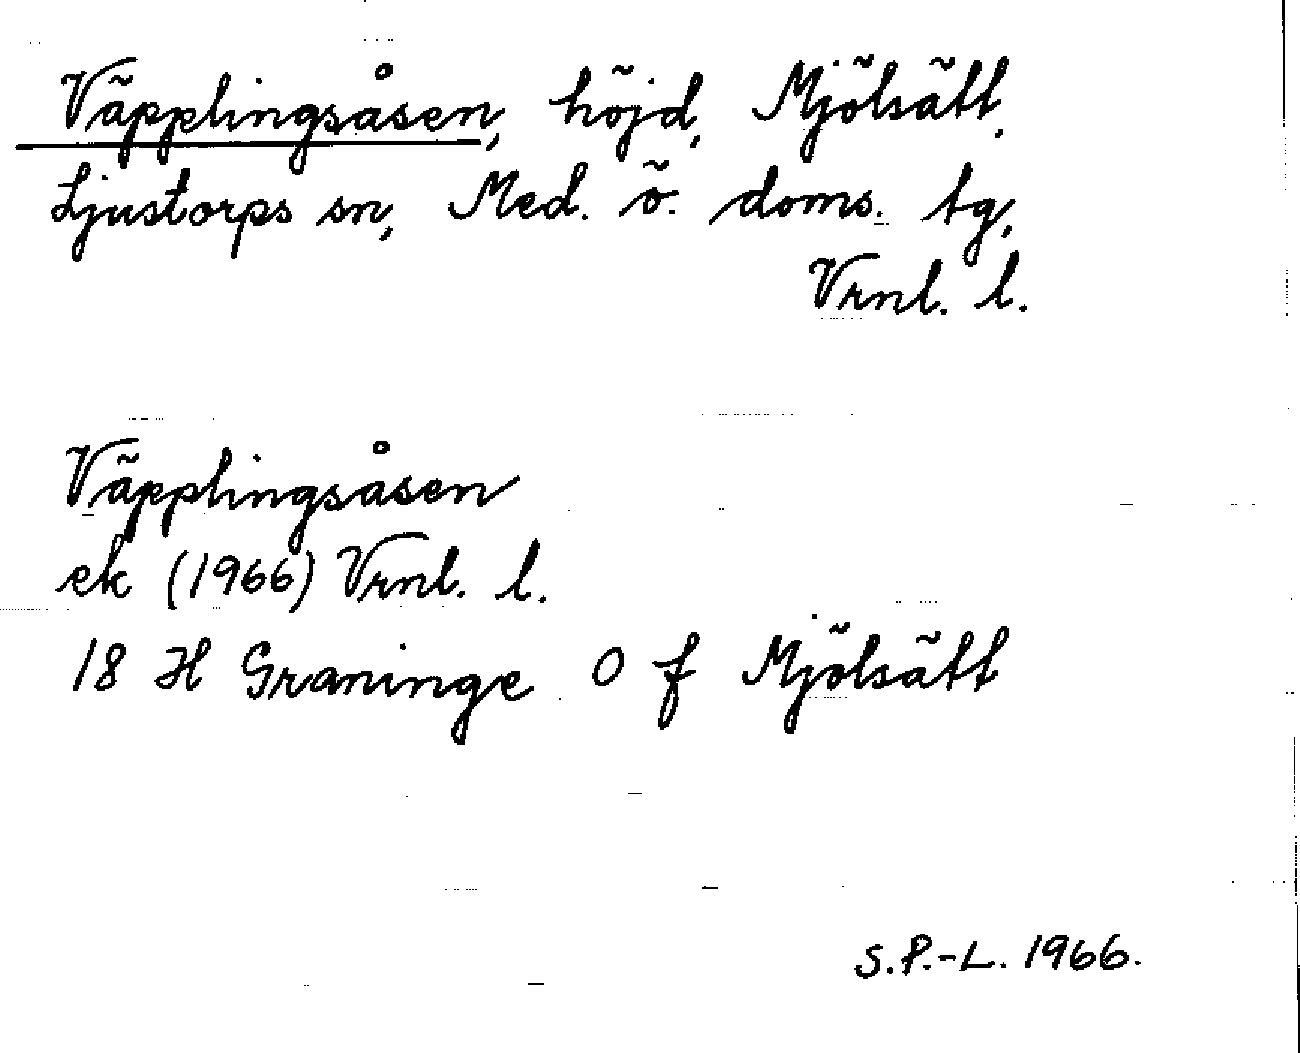 Väpplingsåsen, höjd, Mjölsätt,
Ljustorps sn, Med. ö. doms. tg,
Vrnl. l.
Väpplingsåsen
ek (1966) Vrnl. l.
18 H Graninge O f Mjölsätt
S.P.-L. 1966.